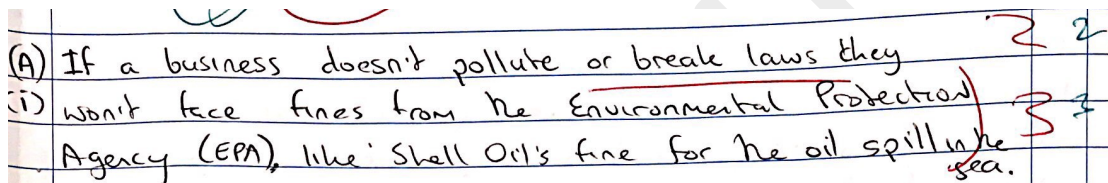 (A) If a business doesn't pollute or break laws they 2 2
(i) won't face fines from he Environmental Protection 3 3
Agency (EPA), like Shell Oil's fine for he oil spill in he
sea.